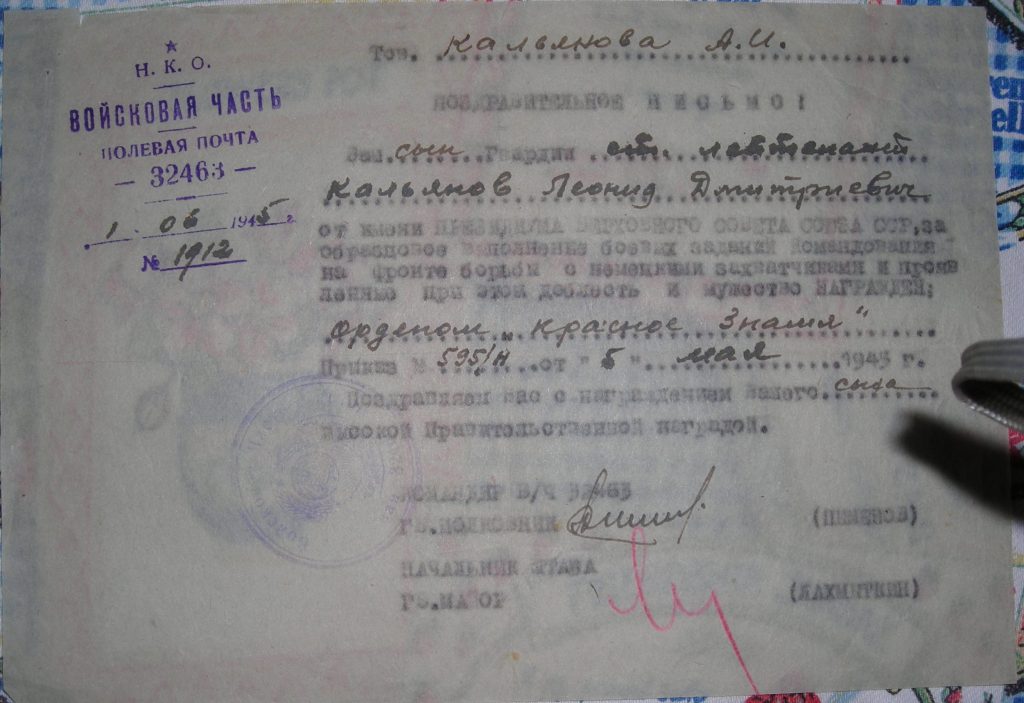 Н. К. О.
ВОЙСКОВАЯ ЧАСТЬ
ПОЛЕВАЯ ПОЧТА
— 32463 —
1. 06 1945 г.
№ 1912
Тов. Кальянова А.И.
ПОЗДРАВИТЕЛЬНОЕ ПИСЬМО!
Ваш сын Гвардии ст. лейтенант
Кальянов Леонид Дмитриевич
от имени ПРЕЗИДИУМА ВЕРХОВНОГО СОВЕТА СОЮЗА ССР, за
образцовое выполнение боевых заданий Командования
на фронте борьбы с немецкими захватчиками и прояв
ленные при этом доблесть и мужество НАГРАЖДЕН:
орденом „Красное Знамя"
Приказ № 595/н от "5" мая 1945 г.
Поздравляем вас с награждением вашего сына
высокой Правительственной наградой.
КОМАНДИР В/Ч 32463
ГВ.ПОЛКОВНИК (ПИМЕНОВ)
НАЧАЛЬНИК ШТАБА
ГВ.МАЙОР